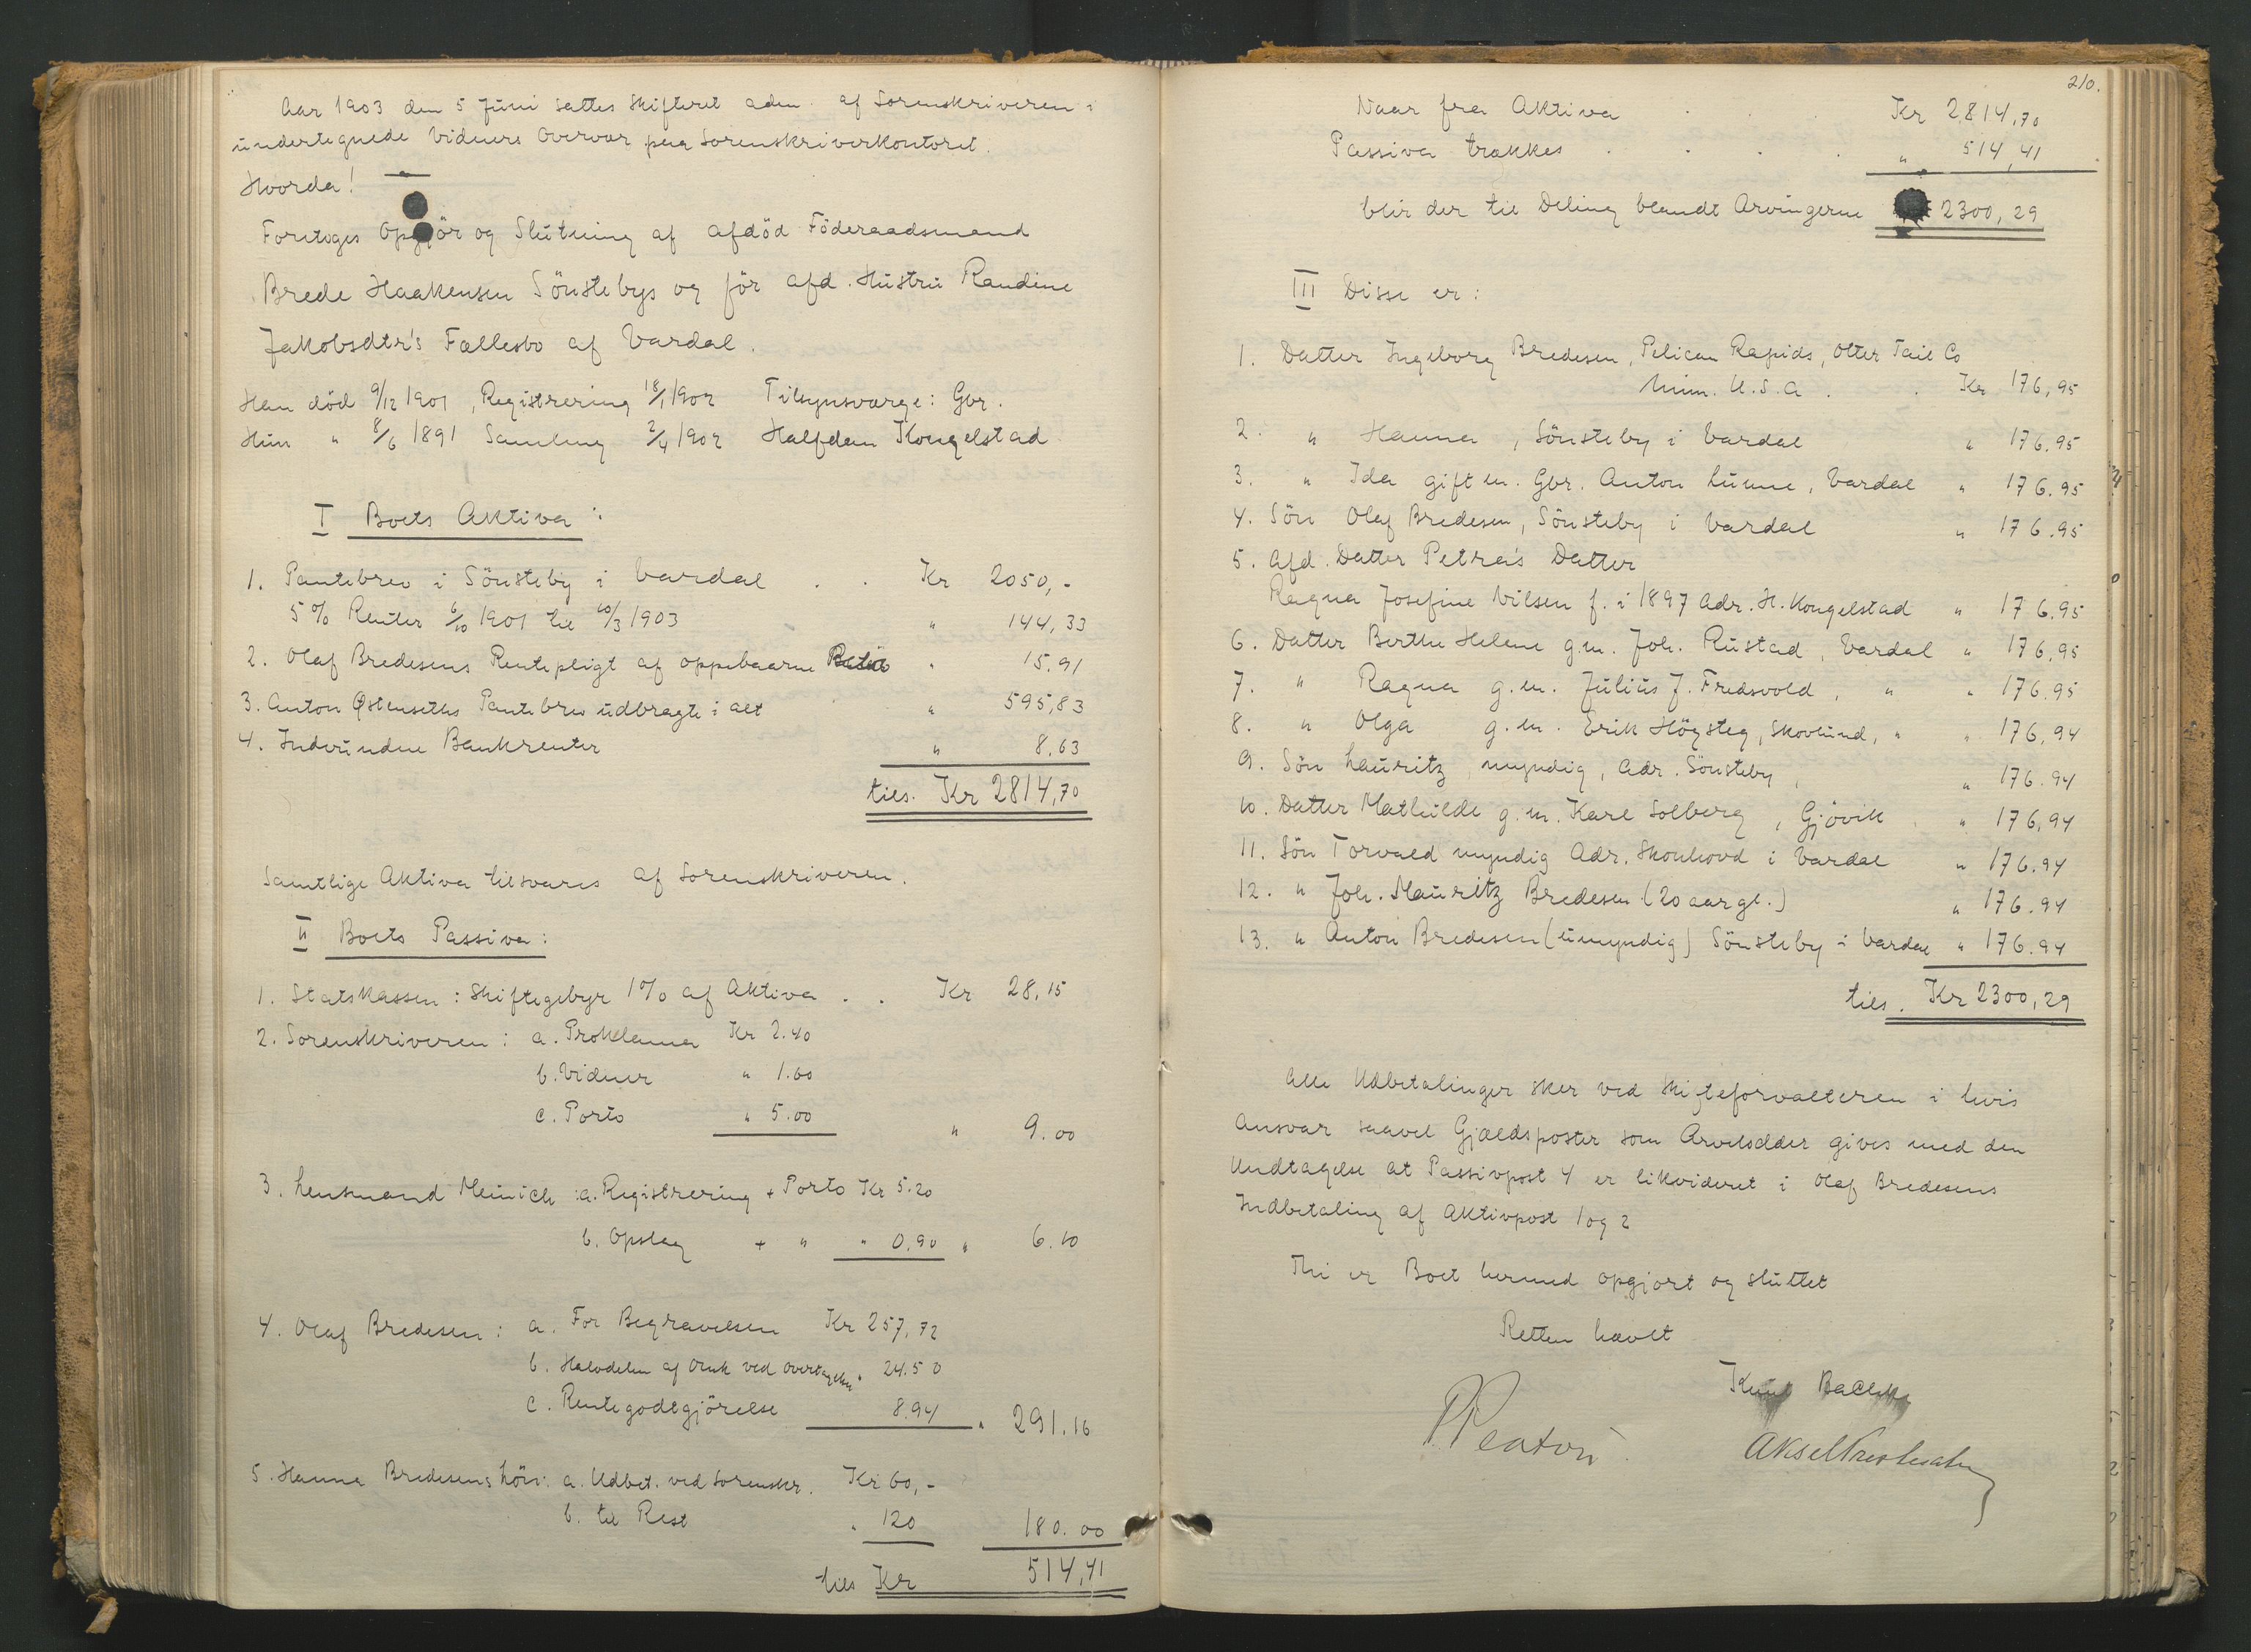 Aar 1903 den 5 Juni sattes Skifteret adm. af Sorenskriveren i
undertegnede Vidners Overvær paa Sorenskriverkontoret.
Hvorda!
Foretoges Opgjör og Slutning af afdöd Föderaadsmand
Brede Haakensen Sönstebys og för afd. Hustru Randine
Jakobsdtr's Fællesbo af Vardal.
Han död 9/12 1901, Registrering 18/1 1902 Tilsynsværge: Gbr.
Hun " 8/6 1891 Samling 2/4 1902 Halfdan Kongelstad
I Boets Aktiva:
1. Pantebrev i Sönsteby i Vardal . . Kr 2050,-
5 % Renter 6/10 1901 til 10/3 1903 " 144,33
2. Olaf Bredesens Rentepligt af oppebaarne " 15.91
3. Anton Østenseths Pantebrev udbragte i alt " 595,83
4. Indvundne Bankrenter " 8.63
tils. Kr 2814,70
Samtlige Aktiva tilsvares af Sorenskriveren.
II Boets Passiva:
1. Statskassen: Skiftegebyr 1 % af Aktiva . . Kr 28,15
2. Sorenskriveren: a. Proklama Kr 2.40
b. Vidner " 1.60
c. Porto " 5.00 " 9.00
3. Lensmand Meinich: a. Registrering + Porto Kr 5.20
b. Opslag + " " 0.90 " 6.10
4. Olaf Bredesen: a. For Begravelsen Kr 257,72
b. Halvdelen af Omk ved Overtagelsen " 24.50
c. Rentegodtgjörelse 8.94 " 291.16
5. Hanna Bredesens Lön: a. Udbet. ved Sorenskr. Kr 60,-
b. til Rest " 120 180.00
tils Kr 514,41
210.
Naar fra Aktiva . . . Kr 2814,70
Passiva trækkes . . . . " 514,41
blir der til Deling blandt Arvingerne 2300,29
III Disse er:
1. Datter Ingeborg Bredesen, Pelican Rapids, Otter Tail Co
Minn. U.S.A . . Kr 176,95
2. " Hanna, Sönsteby i Vardal " 176.95
3. " Ida gift m. Gbr. Anton Lunne, Vardal " 176.95
4. Sön Olaf Bredesen, Sönsteby i Vardal " 176.95
5. Afd. Datter Petra's Datter
Ragna Josefine Nilsen f. i 1897 Adr. H. Kongelstad " 176.95
6. Datter Berthe Helene g.m. Joh. Rustad, Vardal " 176,95
7. " Ragna g.m. Julius J. Fredsvold, " " 176.95
8. " Olga g.m. Erik Högsteg, Skovlund, " " 176,94
9. Sön Lauritz, myndig, Adr. Sönsteby, " 176.94
10. Datter Mathilde g.m. Karl Solberg, Gjövik . " 176,94
11. Sön Torvald myndig Adr. Skonhovd i Vardal " 176.94
12. " Joh. Mauritz Bredesen (20 aar gl.) " 176.94
13. " Anton Bredesen (umyndig) Sönsteby i Vardal " 176.94
tils. Kr 2300,29
Alle Udbetalinger sker ved Skifteforvalteren i hvis
Ansvar saavel Gjældsposter som Arvelodder gives med den
Undtagelse at Passivpost 4 er likvideret i Olaf Bredesens
Indbetaling af Aktivpost 1 og 2
Thi er Boet hermed opgjort og sluttet
Retten hævet
Knut
Aksel